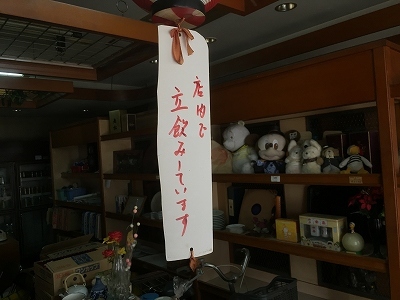 店内で
立飲みしています